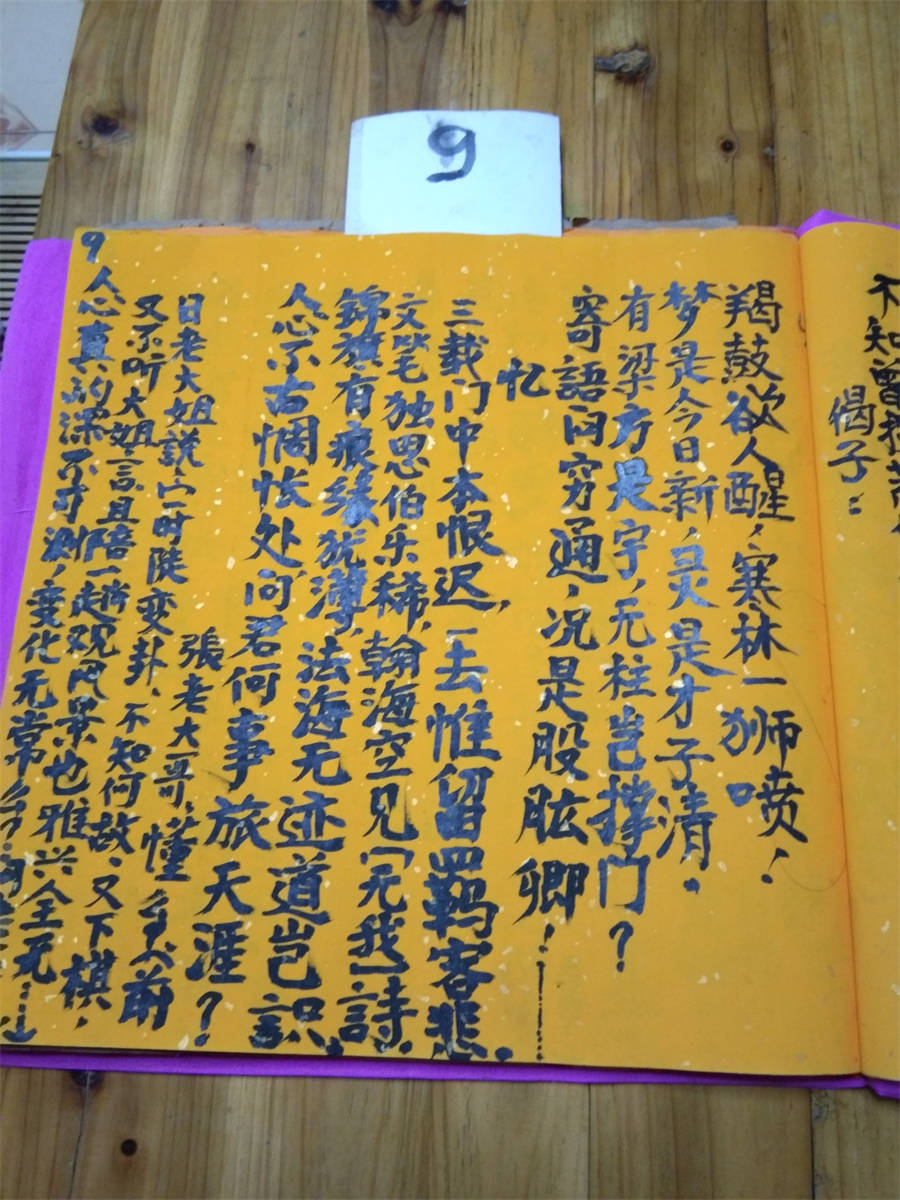 9
不知曾
偈子：
羯鼓欲人醒，寒林一狮喷！
梦是今日新，灵是才子清。
有梁方是宇，无柱岂撑门？
寄語问穷通，况是股肱卿！
忆
三载门中本恨迟，一去惟留羁客悲。
文笔独思伯乐稀，翰海空见［无我］詩。
锦旗有痕缘犹薄，法海无迹道岂识
人心不古惆怅处，问君何事旅天涯？
張老大哥，懂
日老大姐説
变卦、不知何故、又下棋，
又不听大姐言，且陪一趟观风景也雅兴全无
人心真的深不可测，变化无常
9